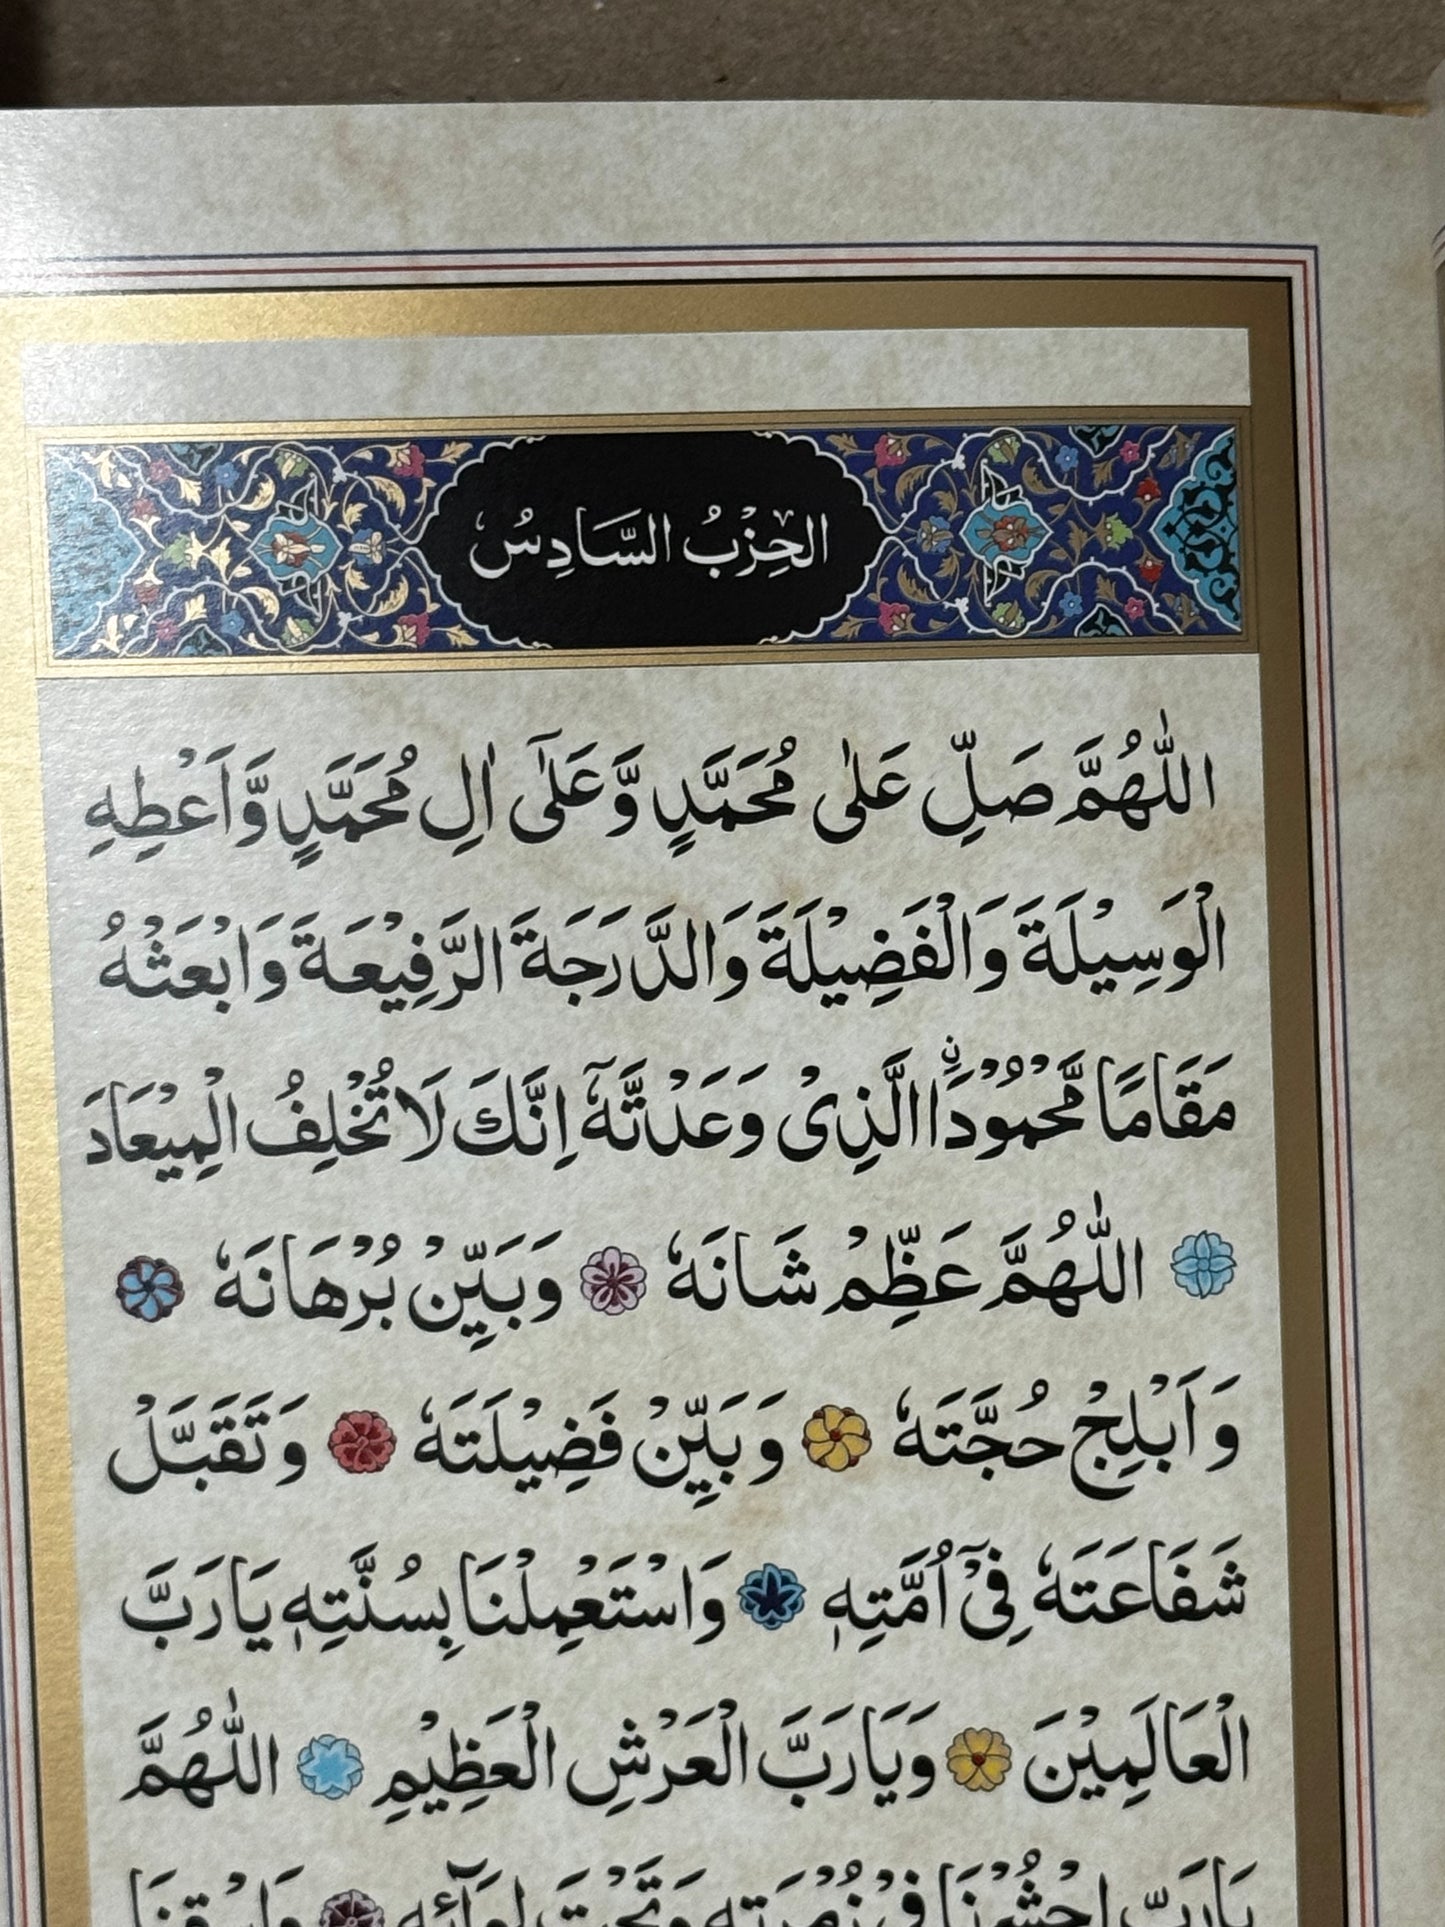 الحِزْبُ السَّادِسُ
اللّٰهُمَّ صَلِّ عَلٰى مُحَمَّدٍ وَّعَلٰٓى اٰلِ مُحَمَّدٍ وَّاَعْطِهِ
الْوَسِيْلَةَ وَالْفَضِيْلَةَ وَالدَّرَجَةَ الرَّفِيْعَةَ وَابْعَثْهُ
مَقَامًا مَّحْمُوْدَاۨ الَّذِىْ وَعَدْتَّهٗٓ اِنَّكَ لَا تُخْلِفُ الْمِيْعَادَ
اللّٰهُمَّ عَظِّمْ شَانَهٗ وَبَيِّنْ بُرْهَانَهٗ
وَاَبْلِجْ حُجَّتَهٗ وَبَيِّنْ فَضِيْلَتَهٗ وَتَقَبَّلْ
شَفَاعَتَهٗ فِىْٓ اُمَّتِهٖ وَاسْتَعْمِلْنَا بِسُنَّتِهٖ يَا رَبَّ
الْعَالَمِيْنَ وَيَا رَبَّ الْعَرْشِ الْعَظِيْمِ اللّٰهُمَّ
يَا رَبِّ احْشُرْنَا فِىْ زُمْرَتِهٖ وَتَحْتَ لِوَآئِهٖ وَاسْقِنَا